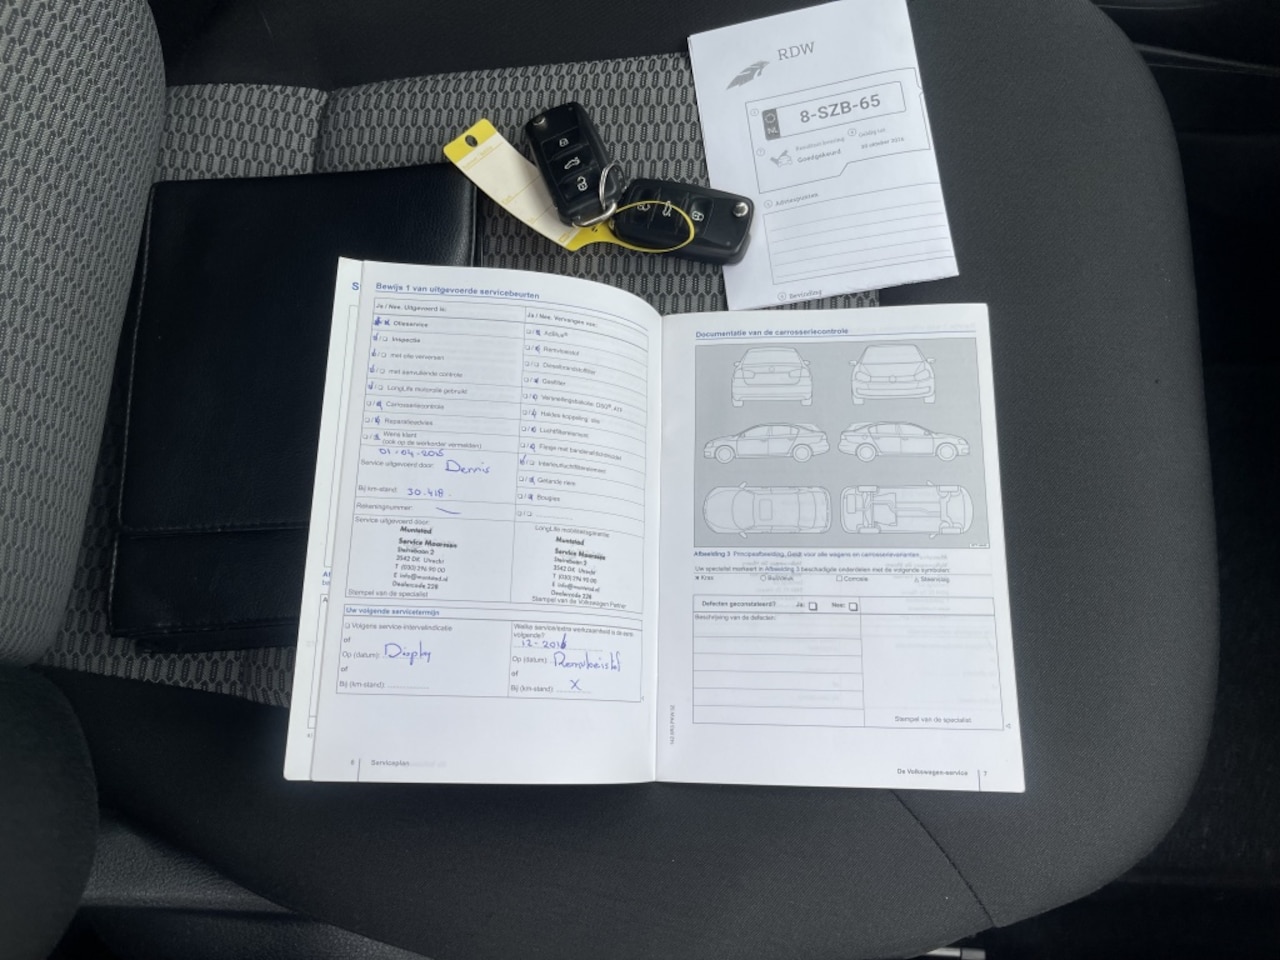 RDW
NL
8-SZB-65
Geldig tot
Goedgekeurd
30 oktober 2016
Adviespunten
Bevinding
Bewijs 1 van uitgevoerde servicebeurten
Ja / Nee. Uitgevoerd is:
Olieservice
Inspectie
met olie verversen
met aanvullende controle
LongLife motorolie gebruikt
Carrosseriecontrole
Reparatieadvies
Wens klant
(ook op de werkorder vermelden)
01-04-2015
Service uitgevoerd door: Dennis
Bij km-stand: 30.418.
Rekeningnummer:
Ja / Nee. Vervangen van:
AdBlue®
Remvloeistof
Dieselbrandstoffilter
Gasfilter
Versnellingsbakolie: DSG®, ATF
Haldex koppeling: olie
Luchtfilterelement
Flesje met bandenafdichtmiddel
Interieurluchtfilterelement
Getande riem
Bougies
Service uitgevoerd door:
Muntstad
Service Maarssen
3542 DX Utrecht
T (030) 296 90 00
E info@muntstad.nl
Dealercode 228
Stempel van de specialist
LongLife mobiliteitsgarantie
Muntstad
Service Maarssen
3542 DX Utrecht
T (030) 296 90 00
E info@muntstad.nl
Dealercode 228
Stempel van de Volkswagen Partner
Uw volgende servicetermijn
Volgens service-intervalindicatie
of
Op (datum): Display
of
Bij (km-stand):
Welke service/extra werkzaamheid is de eerst
volgende?
12-2016
Op (datum): Remvloeistof
of
Bij (km-stand): X
6
Serviceplan
Documentatie van de carrosseriecontrole
Afbeelding 3 Principeafbeelding. Geldt voor alle wagens en carrosserievarianten.
Uw specialist markeert in Afbeelding 3 beschadigde onderdelen met de volgende symbolen:
Kras
Buil/deuk
Corrosie
Steenslag
Defecten geconstateerd? Ja: Nee:
Beschrijving van de defecten:
Stempel van de specialist.
De Volkswagen-service
7